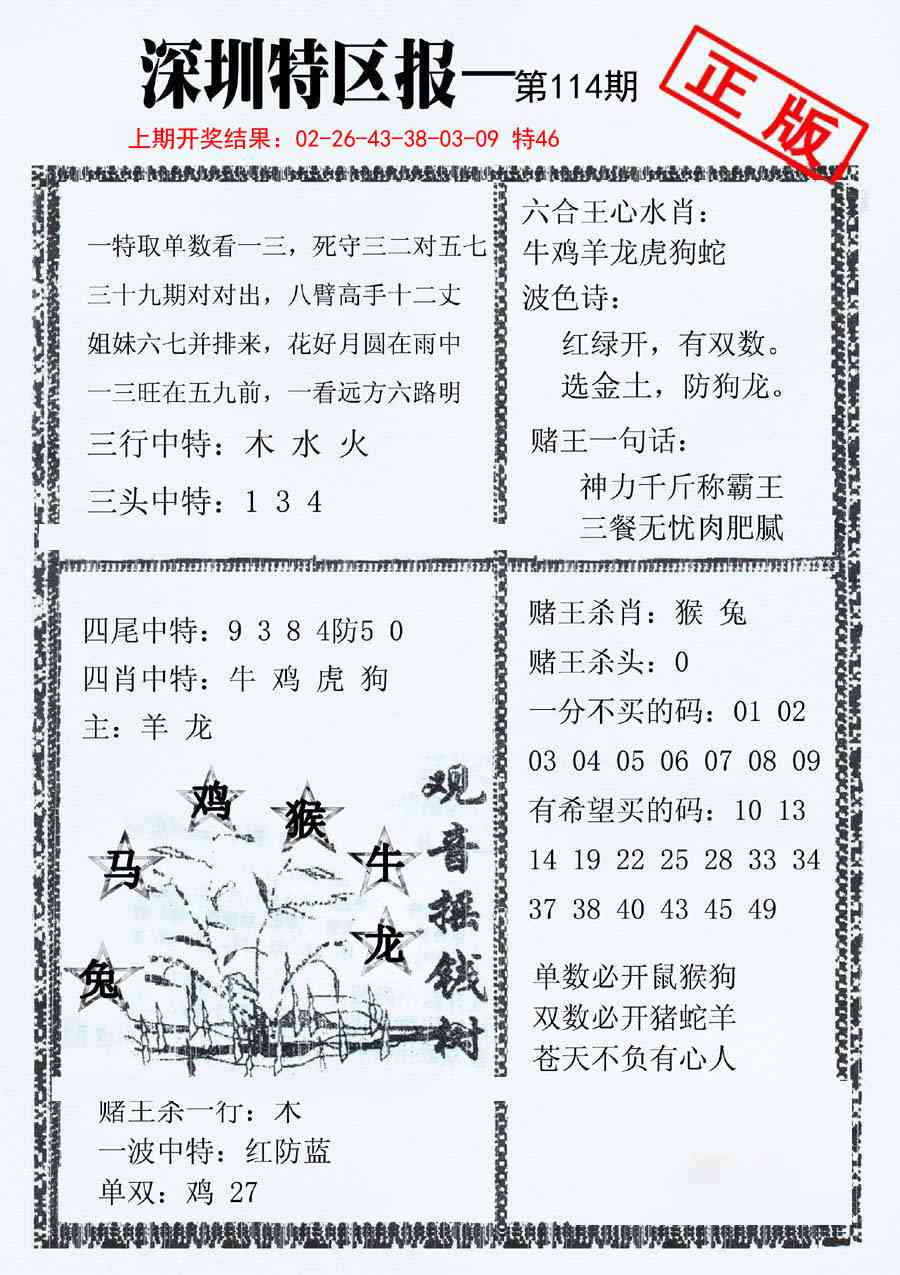 深圳特区报—第114期
正版
上期开奖结果：02-26-43-38-03-09 特46
一特取单数看一三，死守三二对五七
三十九期对对出，八臂高手十二丈
姐妹六七并排来，花好月圆在雨中
一三旺在五九前，一看远方六路明
三行中特：木 水 火
三头中特：1 3 4
六合王心水肖：
牛鸡羊龙虎狗蛇
波色诗：
红绿开，有双数。
选金土，防狗龙。
赌王一句话：
神力千斤称霸王
三餐无忧肉肥腻
四尾中特：9 3 8 4防5 0
四肖中特：牛 鸡 虎 狗
主：羊 龙
鸡
猴
马
牛
龙
兔
观音摇钱树
赌王杀一行：木
一波中特：红防蓝
单双：鸡 27
赌王杀肖：猴 兔
赌王杀头：0
一分不买的码：01 02
03 04 05 06 07 08 09
有希望买的码：10 13
14 19 22 25 28 33 34
37 38 40 43 45 49
单数必开鼠猴狗
双数必开猪蛇羊
苍天不负有心人